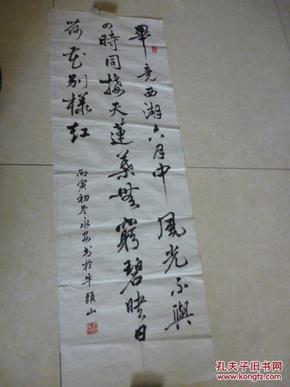 畢竟西湖六月中風光不與
四時同接天蓮葉無窮碧映日
荷花別樣紅
丙寅初冬永安書於牛頭山
孔夫子旧书网